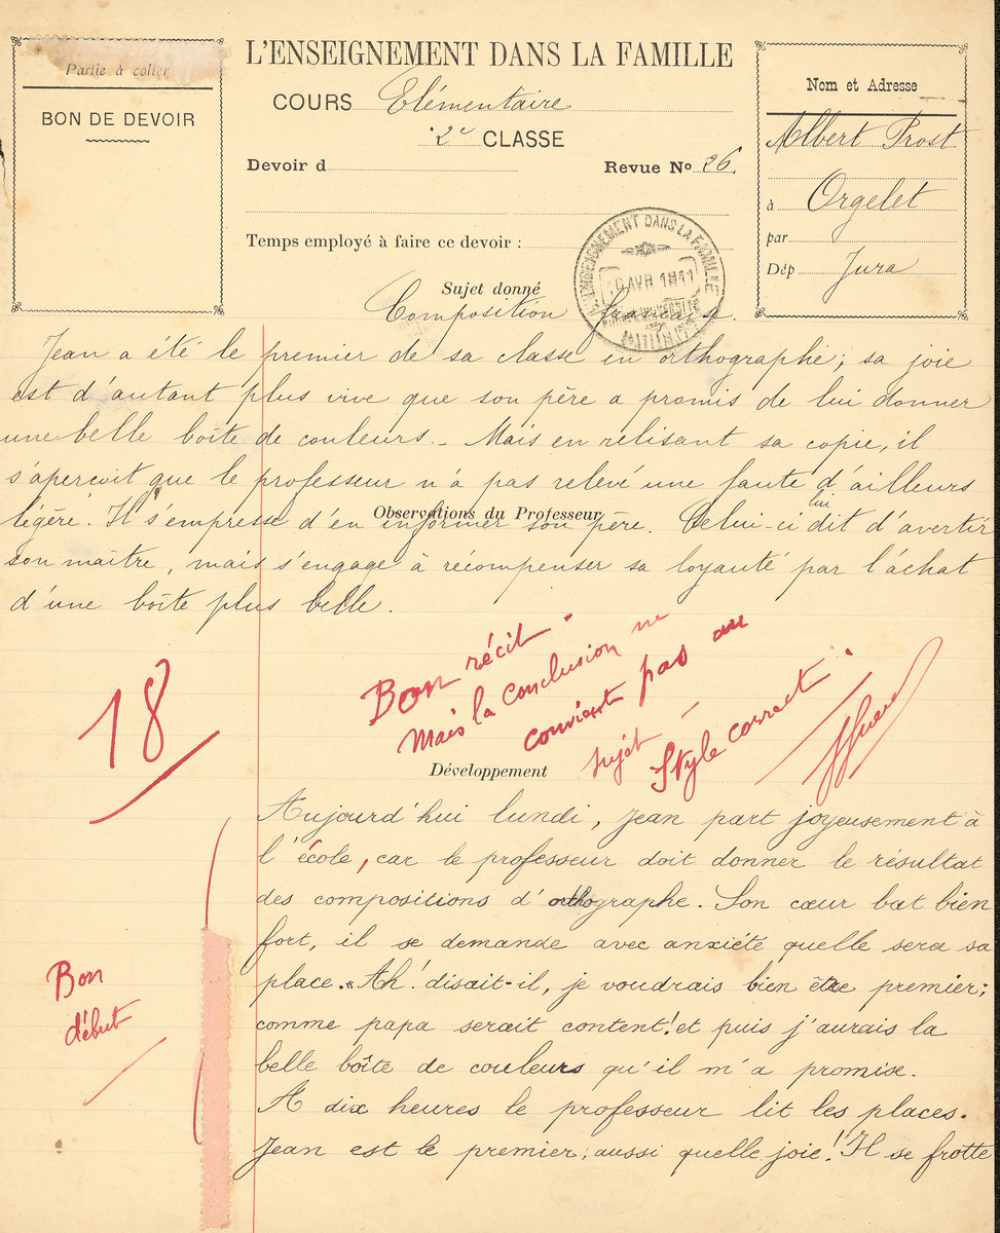 Partie à coller
BON DE DEVOIR
L'ENSEIGNEMENT DANS LA FAMILLE
COURS Elémentaire
2e CLASSE
Devoir d
Revue No 26.
Temps employé à faire ce devoir :
Sujet donné
Nom et Adresse
Albert Prost
à Orgelet
par
Dép Jura
L'ENSEIGNEMENT DANS LA FAMILLE
AVR 1911
Composition française.
Jean a été le premier de sa classe en orthographe; sa joie
est d'autant plus vive que son père a promis de lui donner
une belle boîte de couleurs. – Mais en relisant sa copie, il
s'aperçoit que le professeur n'a pas relevé une faute d'ailleurs
légère. Il s'empresse d'en informer son père. Celui-ci lui dit d'avertir
Observations du Professeur
son maître, mais s'engage à récompenser sa loyauté par l'achat
d'une boîte plus belle.
18
Bon récit.
Mais la conclusion ne
convient pas au
sujet –
Style correct.
Développement
Aujourd'hui lundi, Jean part joyeusement à
l'école, car le professeur doit donner le résultat
des compositions d'orthographe. Son cœur bat bien
fort, il se demande avec anxiété quelle sera sa
place. « Ah! disait-il, je voudrais bien être premier;
comme papa serait content! et puis j'aurais la
belle boîte de couleurs qu'il m'a promise.
A dix heures le professeur lit les places.
Jean est le premier; aussi quelle joie! Il se frotte
Bon
début